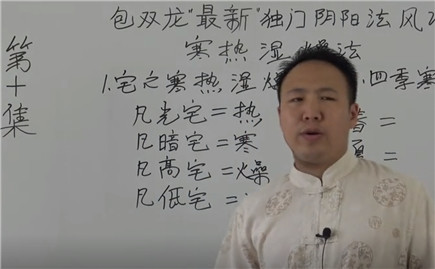 包双龙"最新"独门阴阳法风
寒热湿燥法
第十集
1.宅之寒热湿燥 四季寒
凡光宅=热
凡暗宅=寒 音=
凡高宅=燥 =
凡低宅=